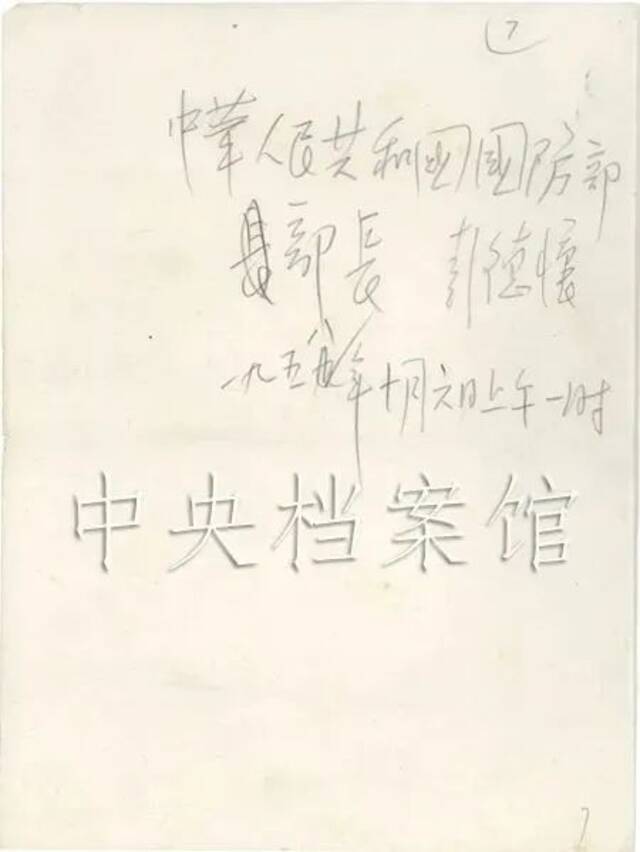 7
中華人民共和國國防部
部長 彭德懷
一九五八年十月六日上午一时
中央档案馆
7